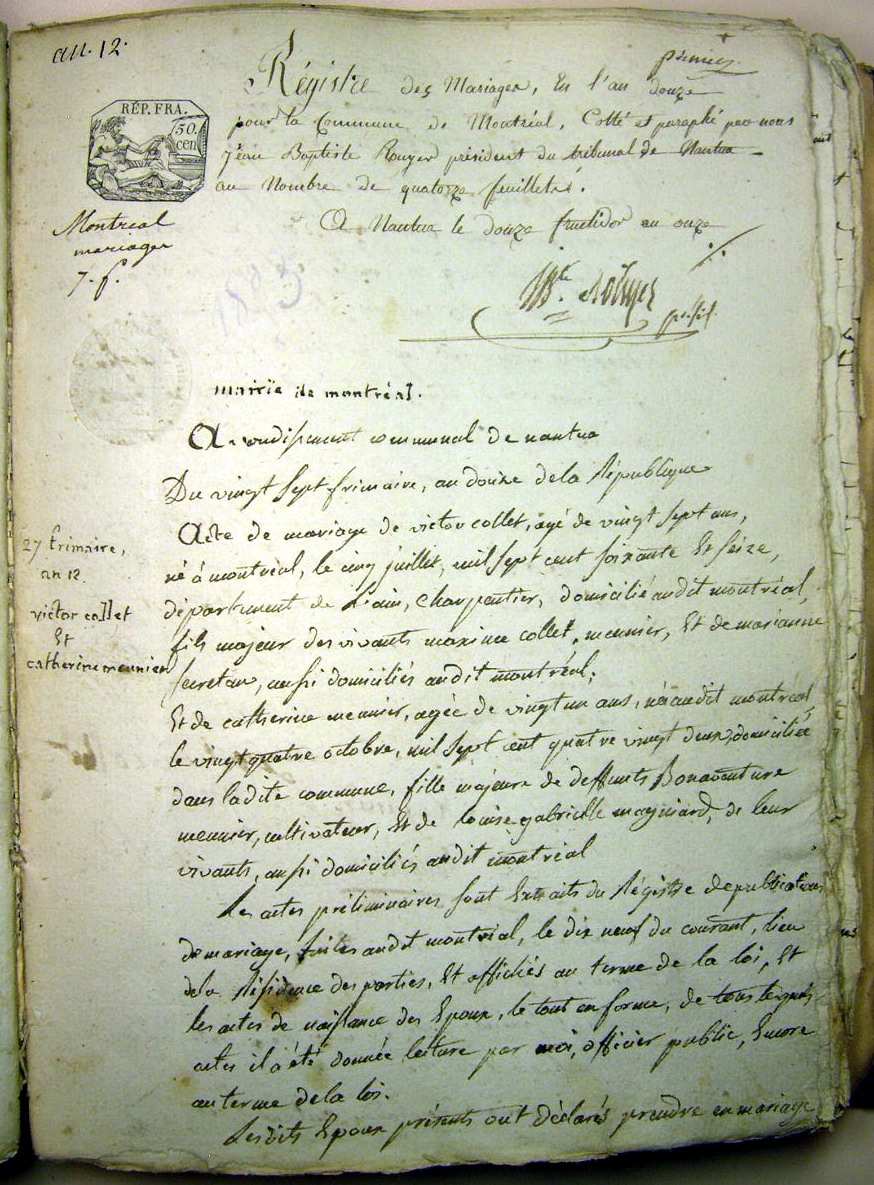 an. 12.
premier
Régistre des Mariages, En l'an douze
pour la Commune de Montréal, Cotté et paraphé par nous
Jean Baptiste Rouyer président du tribunal de Nantua
au Nombre de quatorze feuillets.
A Nantua le douze fructidor an onze
RÉP. FRA.
50.
cen
Montreal
mariages
7. f.
1803
mairie de montréal.
Arrondissement communal de nantua
Du vingt sept frimaire, an douze de la République
Acte de mariage de victor collet, agé de vingt sept ans,
né à montréal, le cinq juillet, mil sept cent soixante Et seize,
département de L'ain, charpentier, domicilié audit montréal,
fils majeur des vivants maxime collet, meunier, Et de marianne
secretan, aussi domiciliés audit montréal;
Et de catherine meunier, agée de vingt un ans, née audit montréal,
le vingt quatre octobre, mil sept cent quatre vingt deux, domiciliée
dans la dite commune, fille majeure de deffunts Bonaventure
meunier, cultivateur, Et de louise gabrielle mayniard, de leur
vivants, aussi domiciliés audit montréal
27 frimaire,
an 12.
victor collet
Et
catherine meunier
Les actes préliminaires sont Extraits du Régistre de publications
de mariage, faites audit montréal, le dix neuf du courant, lieu
de la Résidence des parties, Et affichés au terme de la loi, Et
les actes de naissance des Epoux, le tout en forme, de tous lesquels
actes il a été donnée lecture par moi, officier public, Encore
au terme de la loi.
Lesdits Epoux présents ont déclarés prendre en mariage